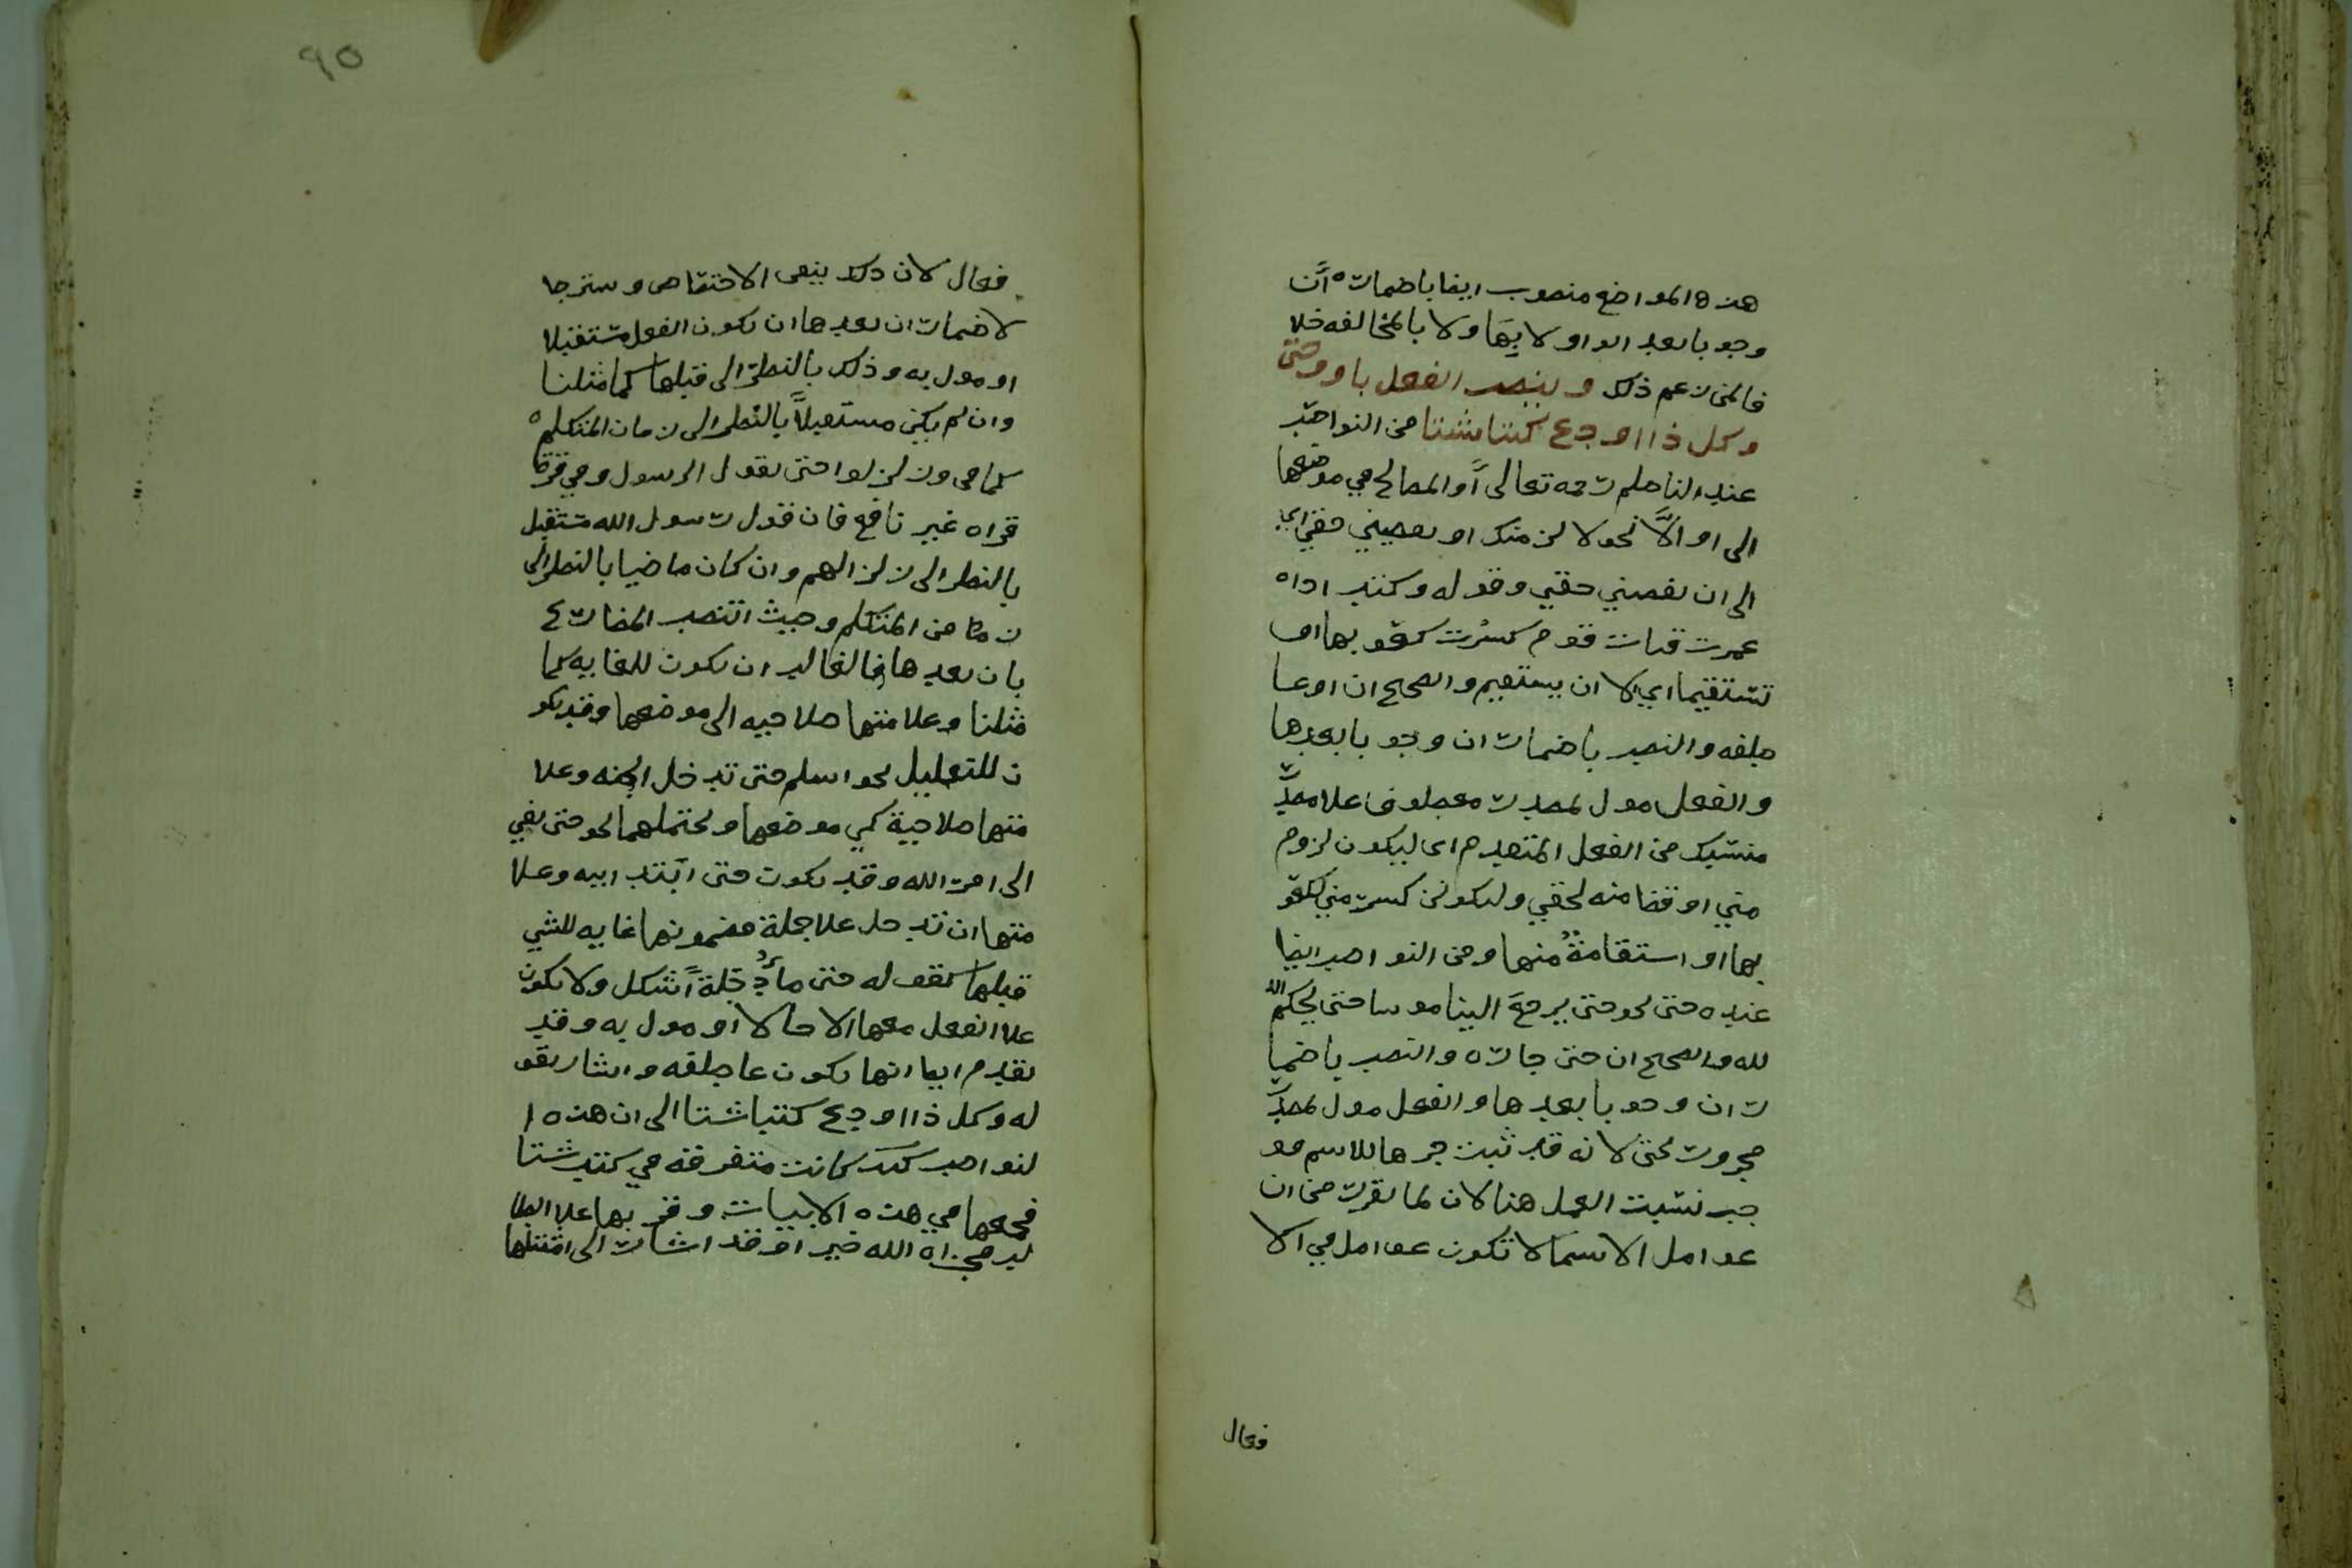 هذه المواضع منصوب ايضا باضمار ه أن
وجوبا بعد الواو لا بها ولا بالمخالفه خلا
فا لمن زعم ذلك وينصب الفعل باو وحتى
وكل ذا اودع كتبا شتا من النواصب
عند الناظم رحمه تعالى أو الصالح في موضعها
الى او الا نحو لا لزمنك او تعطيني حقي اي
الى ان تقضيني حقي وقوله وكنت اداه
غمزت قنات قوم كسرت كعوبها او
تستقيما اي الا ان يستقيم والصحيح ان او عا
طفه والنصب باضمار ان وجوبا بعدها
والفعل مول بمصدر معطوف علا مصدر
منسبك من الفعل المتقدم اى ليكون لزوم
مني او قضا منه لحقي وليكونن كسر مني لكعو
بها او استقامة منها ومن النواصب ايضا
عنده حتى نحو حتى يرجع الينا موسا حتى يحكم الله
لله والصحيح ان حتى جاره والنصب باضما
ر ان وجوبا بعدها والفعل مول بمصدر
مجرور بحتى لانه قد ثبت جرها للاسم فو
جب نسبت العمل هنا لان لما تقرر من ان
عوامل الاسما لا تكون عوامل في الا
فعال
٩٥
فعال لان ذلك ينفي الاختصاص وسترجا
لاضمار ان بعدها ان يكون الفعل مستقبلا
او مول به وذلك بالنظر الى قبلها كما مثلنا
وان لم يكن مستقبلاً بالنظر الى زمان المتكلم ه
كما في وزلزلوا حتى يقول الرسول وفي قرا
قراه غير نافع فان قول رسول الله مستقبل
بالنظر الى زلزالهم وان كان ماضيا بالنظر الى
زمان من المتكلم وحيث انتصب المضارع
بان بعدها فالغالب ان يكون للغايه كما
مثلنا وعلامتها صلاحيه الى موضعها وقد يكو
ن للتعليل نحو اسلم حتى تدخل الجنه وعلا
متها صلاحية كي موضعها ويحتملهما نحو حتى تفي
الى امر الله وقد يكون حتى ابتدابيه وعلا
متها ان تدخل علا جملة مضمونها غايه للشي
قبلها كقوله حتى ما دجلة أشكل ولا يكون
علا الفعل معها الا حالا او مول به وقد
تقدم ايضا انها يكون عاطفه واشار بقو
له وكل ذا اودع كتبا شتا الى ان هذه ا
لنواصب كانت متفرقه في كتب شتا
فجمعها في هذه الابيات وقربها علا الطا
لب فجزاه الله خيرا وقد اشار الى امثلتها